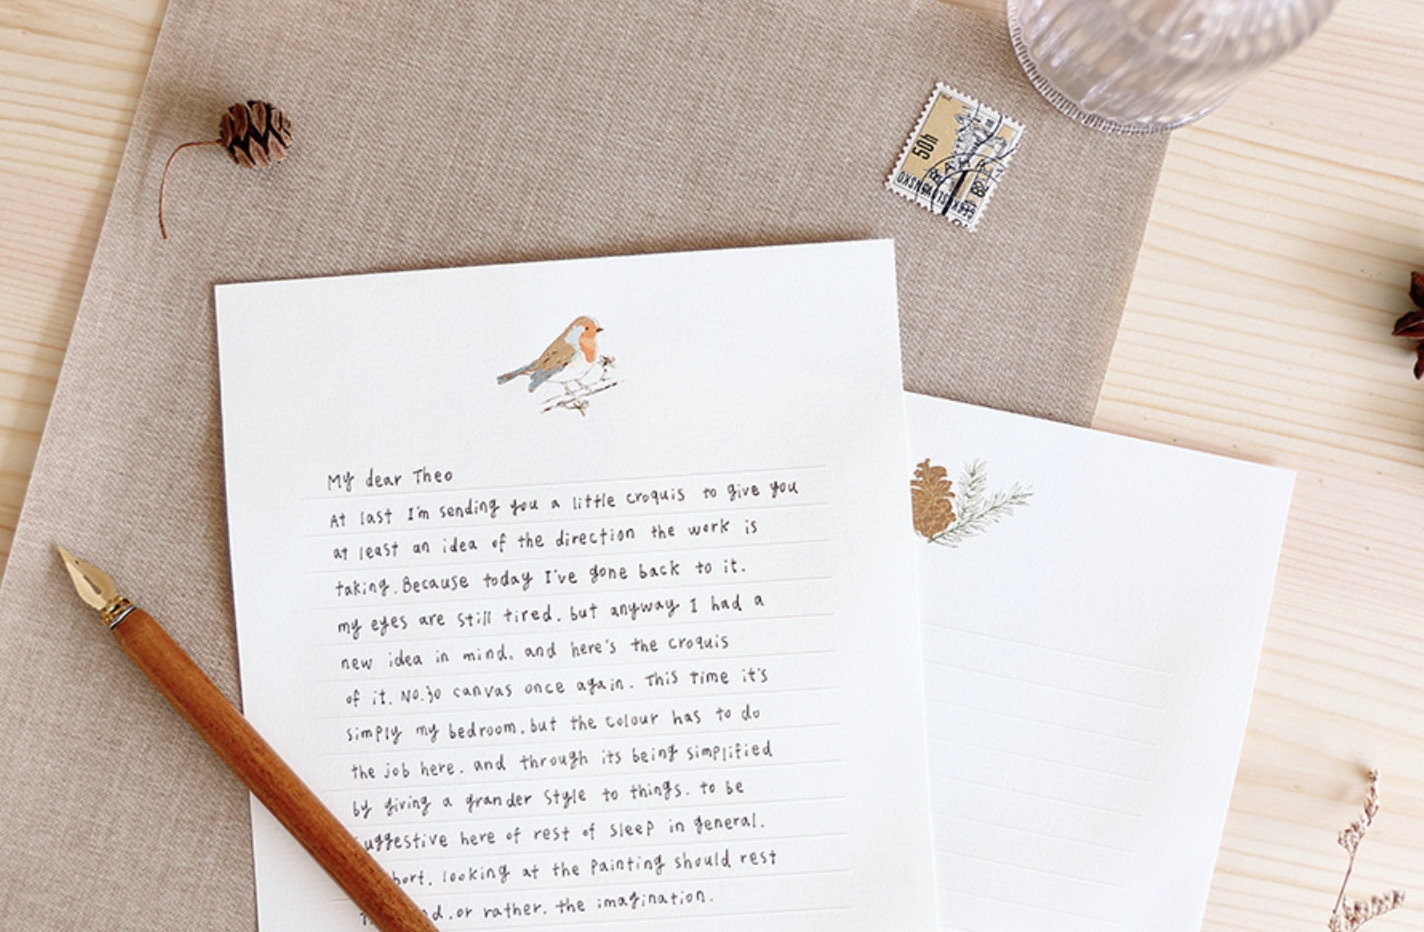 50h
ČESKOSLOVENSKO
My dear Theo
At last I'm sending you a little croquis to give you
at least an idea of the direction the work is
taking. Because today I've gone back to it.
my eyes are still tired. but anyway I had a
new idea in mind. and here's the croquis
of it. No.30 canvas once again. This time it's
simply my bedroom. but the colour has to do
the job here. and through its being simplified
by giving a grander style to things. to be
uggestive here of rest of sleep in general.
hort. looking at the painting should rest
d. or rather. the imagination.